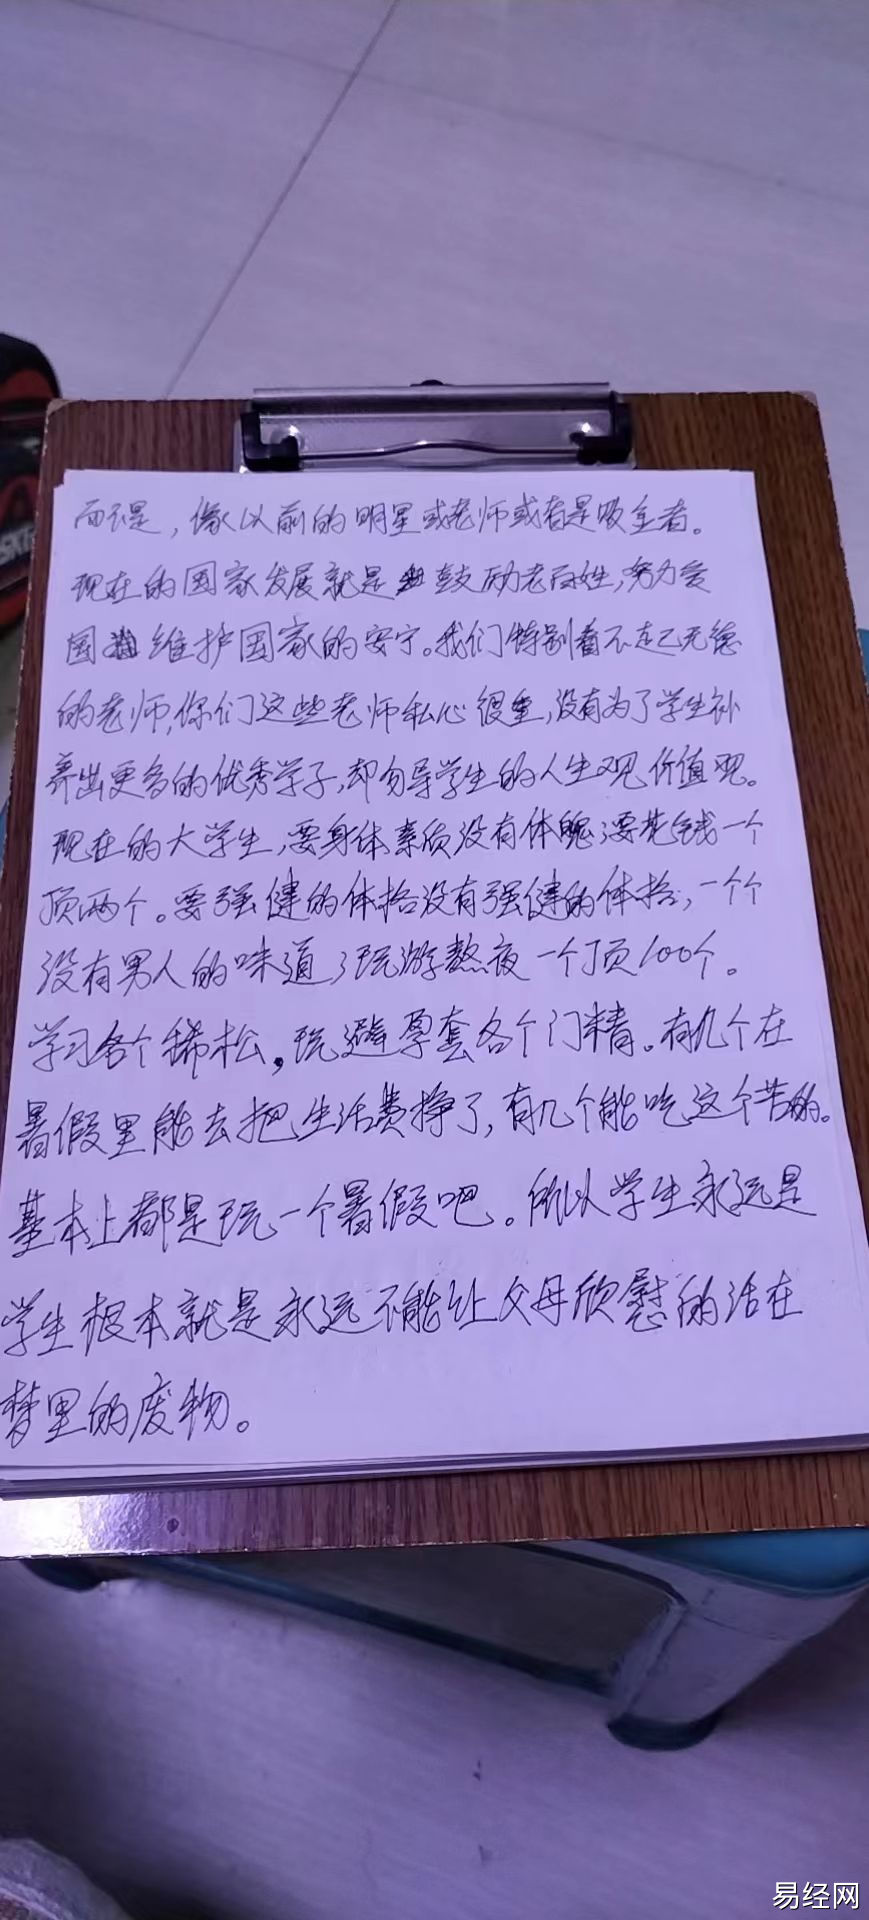 而不是，像以前的明星或老师或者是吸金者。
现在的国家发展就是鼓励老百姓，努力爱
国维护国家的安宁。我们特别看不起无德
的老师，你们这些老师私心很重，没有为了学生补
养出更多的优秀学子，却勿导学生的人生观价值观。
现在的大学生，要身体素质没有体魄；要花钱一个
顶两个。要强健的体格没有强健的体格，一个个
没有男人的味道；玩游熬夜一个顶100个。
学习各个稀松，玩避孕套各个门精。有几个在
暑假里能去把生活费挣了，有几个能吃这个苦的。
基本上都是玩一个暑假吧。所以学生永远是
学生根本就是永远不能让父母欣慰的活在
梦里的废物。
易经网